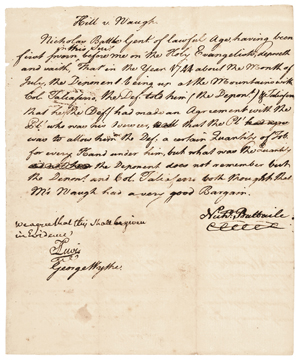 Hill v. Waugh.
Nicholas Battle Gent of lawful Age having been
first sworn before me on the Holy Evangelists deposeth
and saith That in the Year 1744 about the Month of
July, the Deponent being up at the Mountains with
Col Taliaferro, the Def told him (the Depont) & Taliafero
that he the Deft had made an Agreement with the
Pl who was his
was to allow him the Def. a certain Quantity of Tob
for every Hand under him, but what was the
the Deponent does not remember but
the Depont and Col Taliaferro both thought that
Mr Waugh had a very good Bargain.
Nichs. Battaile
we agree that this Shall be given
in Evidence
George Wythe.